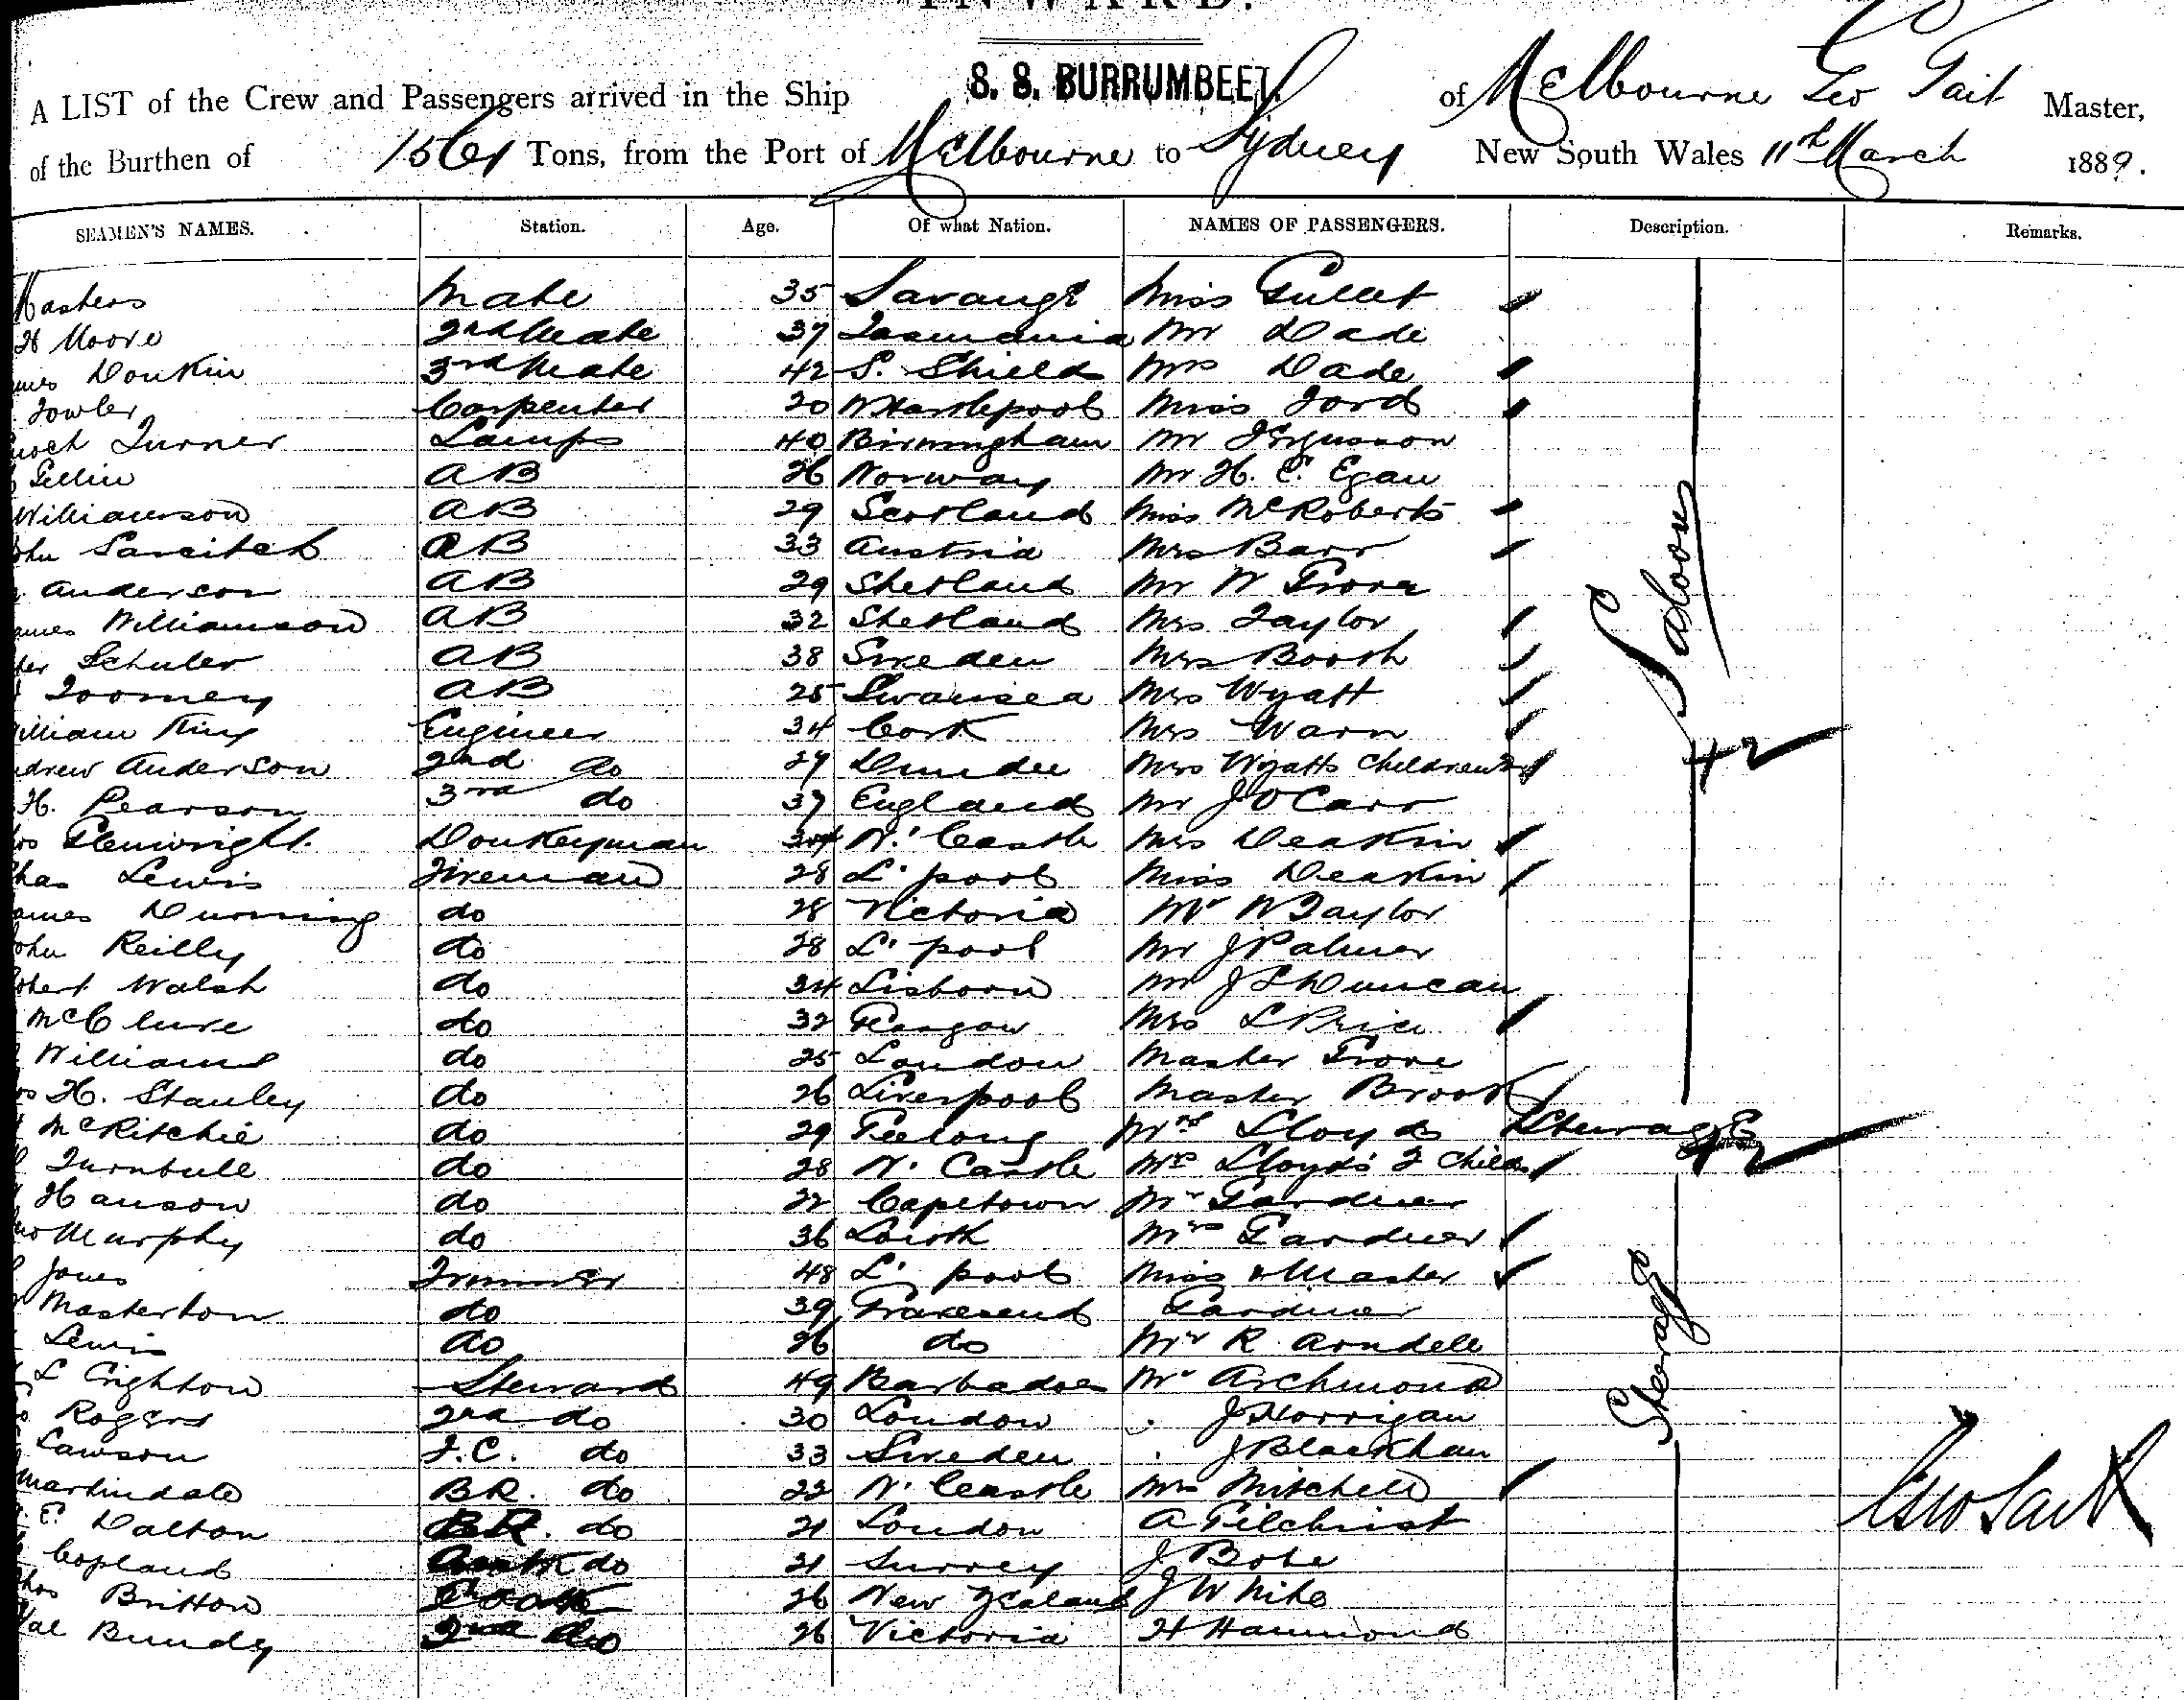 INWARD.
A LIST of the Crew and Passengers arrived in the Ship S. S. BURRUMBEET. of Melbourne Geo Tait Master,
of the Burthen of Tons, from the Port of Melbourne to Sydney New South Wales 11th March 1889.
SEAMEN'S NAMES. Station. Age. Of what Nation. NAMES OF PASSENGERS. Description. Remarks.
Mate 35 Miss Gullet
H Moore 2nd Mate 37 Tasmania Mr Dade
Donkin 3rd Mate 42 S. Shields Mrs Dade
Fowler Carpenter 20 W Hartlepool Miss Ford
Turner Lamps 40 Birmingham Mr Fergusson
AB 26 Norway Mr H. E. Egan
Williamson AB 29 Scotland Miss McRoberts
AB 33 Austria Mrs Barr
Anderson AB 29 Shetland Mr W Grove
Williamson AB 32 Shetland Mrs Taylor
Schuler AB 38 Sweden Mrs Booth
Toomey AB 25 Swansea Mrs Wyatt
William King Engineer 34 Cork Mrs Warn
Andrew Anderson 2nd do 27 Dundee Mrs Wyatts Children 2
H. Pearson 3rd do 37 England Mr J O Carr
Glenwright Donkeyman N. Castle Mrs Deakin
Chas Lewis Fireman 28 L'pool Miss Deakin
James Durning do 28 Victoria Mr W Taylor
John Reilly do 28 L'pool Mr J Palmer
Robert Walsh do 34 Lisborn Mr J S Duncan
McClure do 32 Glasgow Mrs L Price
Williams do 25 London Master Grove
H. Stanley do 26 Liverpool Master Brook
McRitchie do 29 Geelong Mrs Lloyd Steerage
Turnbull do 28 N. Castle Mrs Lloyds 2 Child
Hanson do 22 Capetown Mr Gardner
Murphy do 36 Louth Mrs Gardner
Jones Trimmer 48 L'pool Miss & Master
Masterton do 39 Gravesend Gardner
Lewis do 26 do Mr R Arndell
L Crighton Steward 49 Barbadoes Mr Archmond
Rogers 2nd do 30 London J Horrigan
Lawson F.C. do 33 Sweden J Blackhan
Martindale BR. do 22 N. Castle Mrs Mitchell
E. Dalton BR. do 21 London A Gilchrist
Copland do 21 Surrey J Bohe
Britton Cook 26 New Zealand J White
Val Bundy 2nd do 26 Victoria H Hammond
Saloon
42
42
Steerage
Geo Tait